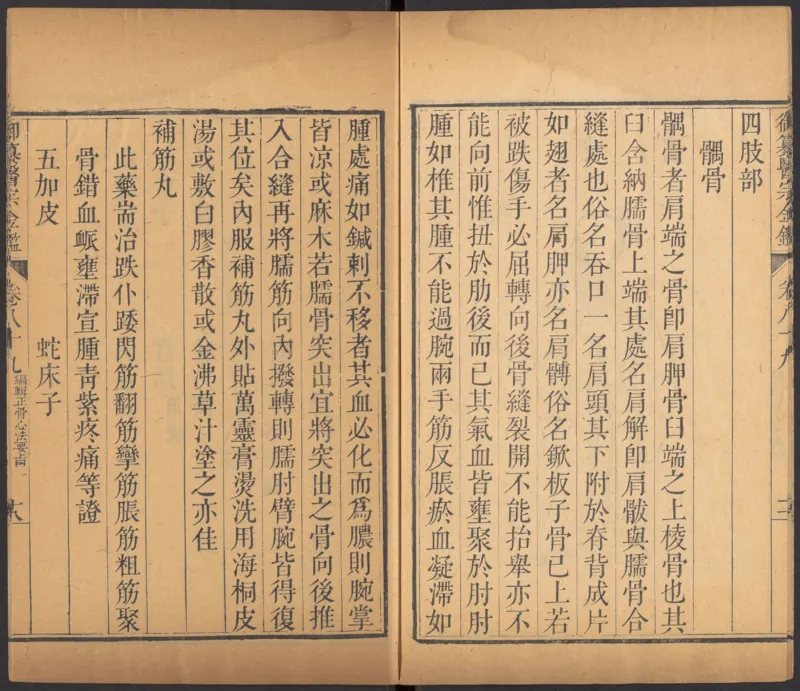 四肢部
髃骨
髃骨者肩端之骨卽肩胛骨臼端之上棱骨也其
臼含納臑骨上端其處名肩解卽肩骸與臑骨合
縫處也俗名吞口一名肩頭其下附於脊背成片
如翅者名肩胛亦名肩髆俗名鍁板子骨已上若
被跌傷手必屈轉向後骨縫裂開不能抬舉亦不
能向前惟扭於肋後而已其氣血皆壅聚於肘肘
腫如椎其腫不能過腕兩手筋反脹瘀血凝滯如
腫處痛如鍼刺不移者其血必化而爲膿則腕掌
皆涼或麻木若臑骨突出宜將突出之骨向後推
入合縫再將臑筋向內撥轉則臑肘臂腕皆得復
其位矣內服補筋丸外貼萬靈膏燙洗用海桐皮
湯或敷白膠香散或金沸草汁塗之亦佳
補筋丸
此藥耑治跌仆踒閃筋翻筋攣筋脹筋粗筋聚
骨錯血脈壅滯宣腫靑紫疼痛等證
五加皮 蛇床子
御纂醫宗金鑑 卷八十九 編輯正骨心法要旨